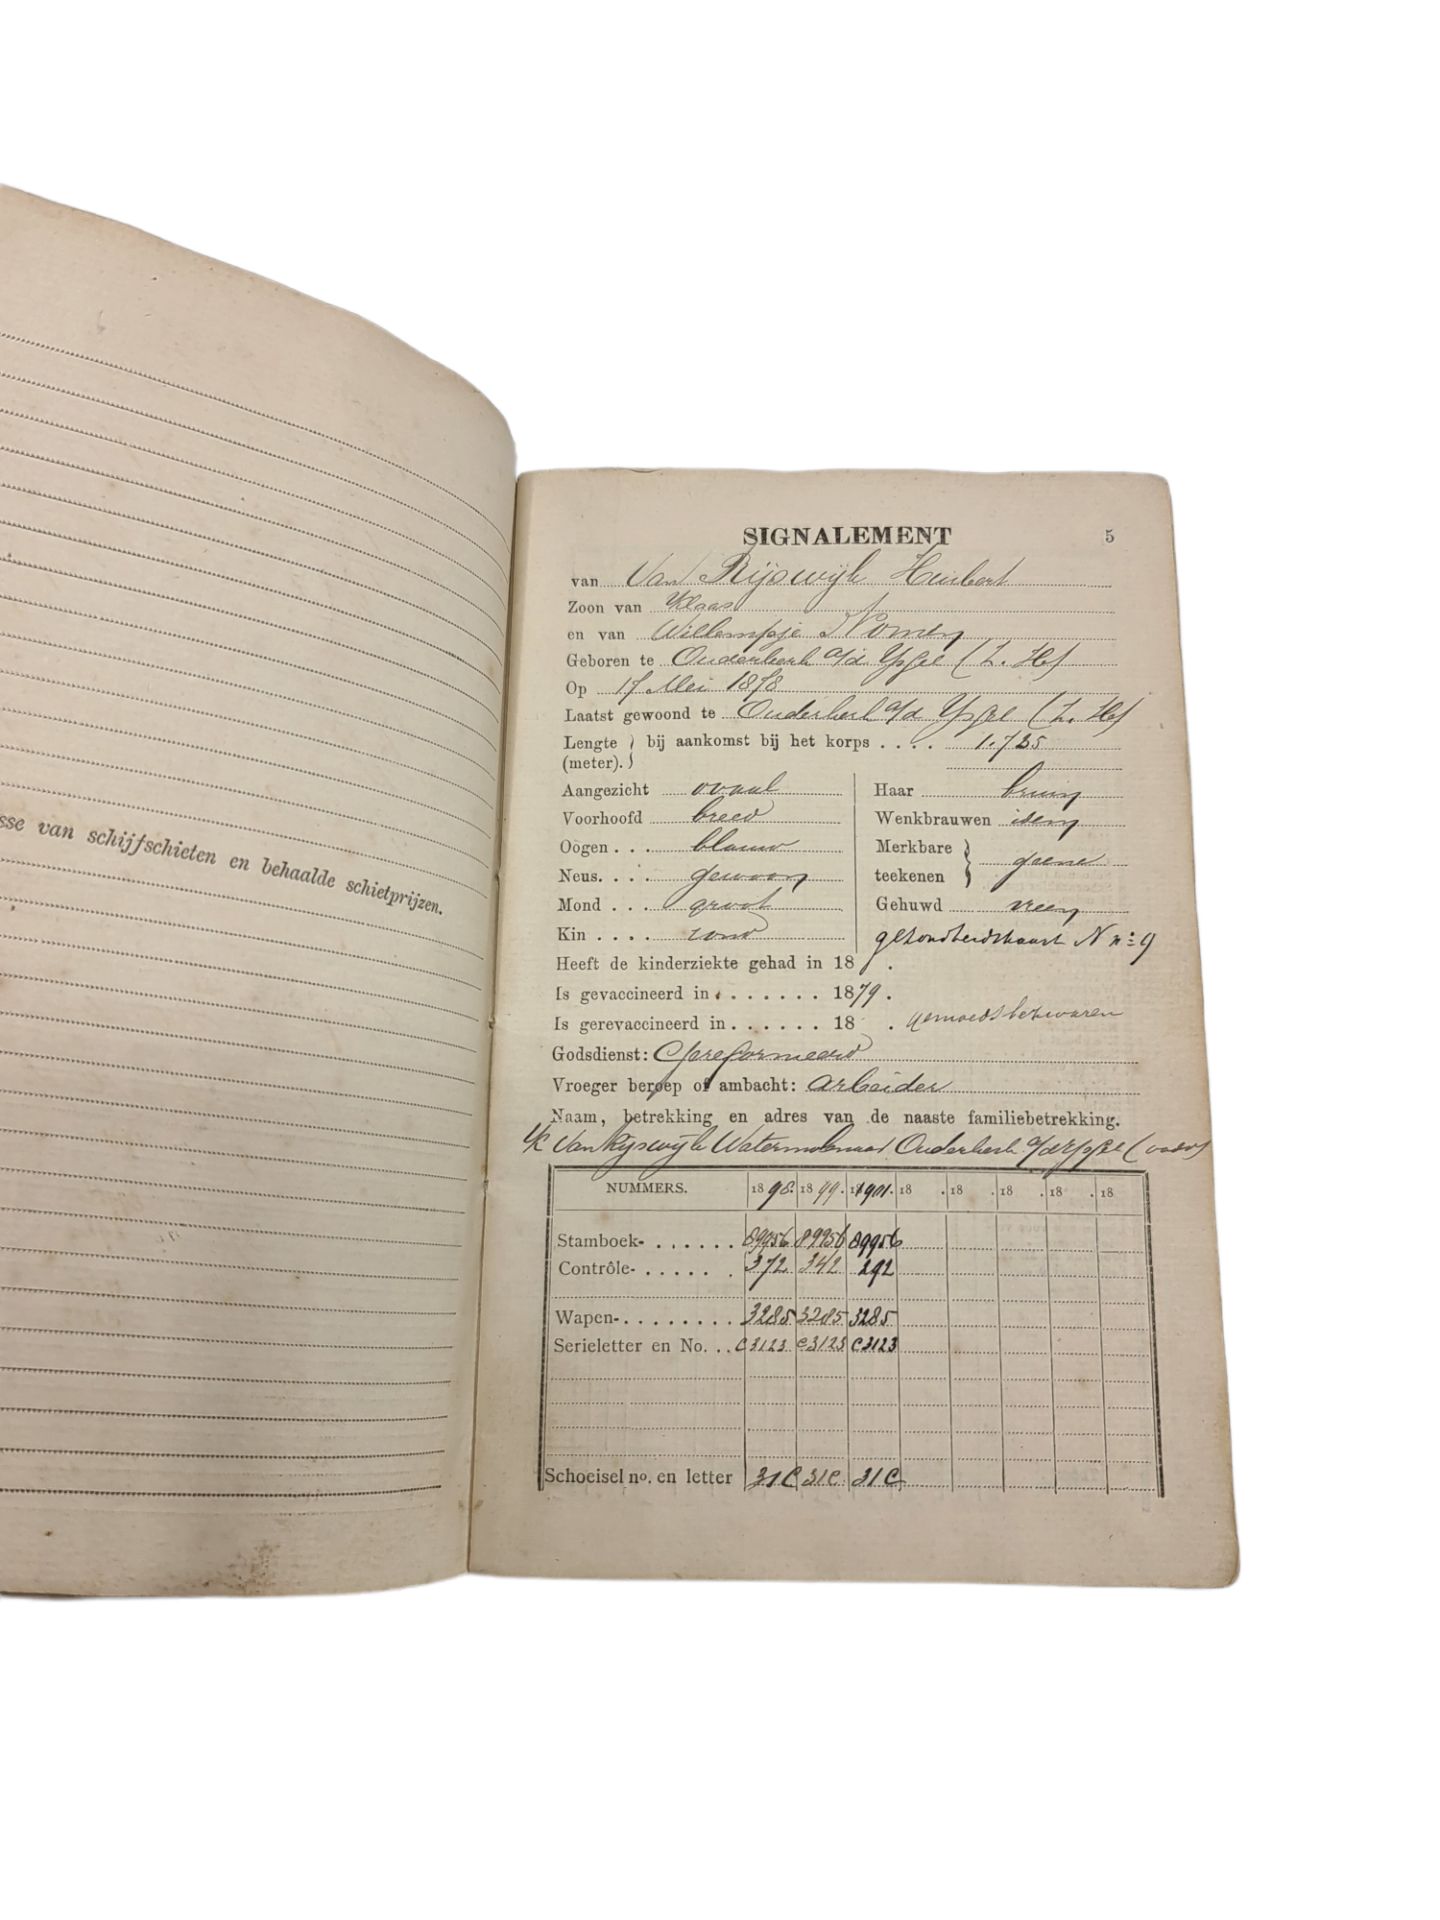 sse van schijfschieten en behaalde schietprijzen.
SIGNALEMENT 5
van Van Rijswijk Huibert
Zoon van Klaas
en van Willempje Nomen
Geboren te Ouderkerk a/d Yssel (Z. H.)
Op 17 Mei 1878
Laatst gewoond te Ouderkerk a/d Yssel (Z. H.)
Lengte (meter). } bij aankomst bij het korps .... 1.735
Aangezicht ovaal Haar bruin
Voorhoofd breed Wenkbrauwen idem
Oogen ... blauw Merkbare teekenen } geene
Neus.... gewoon
Mond ... groot Gehuwd neen
Kin .... rond gezondheidskaart N n: 9
Heeft de kinderziekte gehad in 18 / .
Is gevaccineerd in ....... 1879.
Is gerevaccineerd in ...... 18 . gemoedsbezwaren
Godsdienst: Gereformeerd
Vroeger beroep of ambacht: arbeider
Naam, betrekking en adres van de naaste familiebetrekking.
K Van Rijswijk Watermolenaar Ouderkerk a/d Yssel (vader)
NUMMERS. 1898. 1899. 1901. 18 . 18 . 18 . 18 . 18
Stamboek- ...... 89956 89956 89956
Contrôle- ...... 372 342 292
Wapen- ........ 3285 3285 3285
Serieletter en No. .. C3123 C3123 C3123
Schoeisel no. en letter 31C 31C 31C